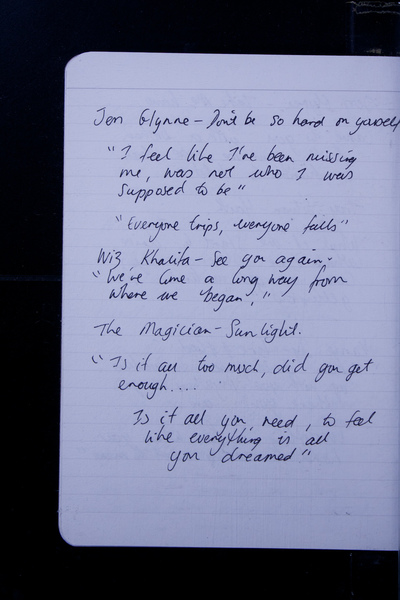 Jen Glynne - Don't be so hard on yourself
"I feel like I've been missing
me, was not who I was
supposed to be"
"Everyone trips, everyone falls"
Wiz Khalifa - See you again.
"We've come a long way from
where we began,"
The Magician - Sunlight.
"Is it all too much, did you get
enough....
Is it all you, need, to feel
like everything is all
you dreamed"